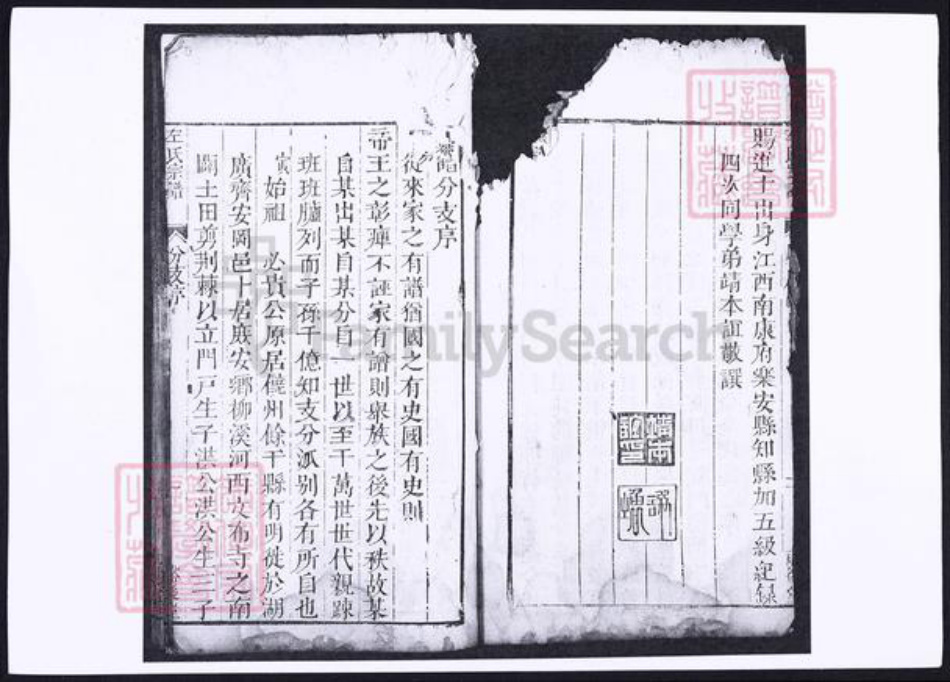 賜進士出身江西南康府樂安縣知縣加五級紀錄
四次同學弟靖本誼敬譔
譜分支序
從來家之有譜猶國之有史國有史則
帝王之彰癉不誣家有譜則衆族之後先以秩故某
自某出某自某分自一世以至千萬世世代親踈
班班臚列而子孫千億知支分派别各有所自也
始祖必貴公原居饒州餘干縣有明徙於湖
廣齊安岡邑卜居庶安鄉柳溪河西文布寺之南
闢土田剪荆棘以立門戸生子洪公洪公生三子
左氏宗譜
分支序
FamilySearch